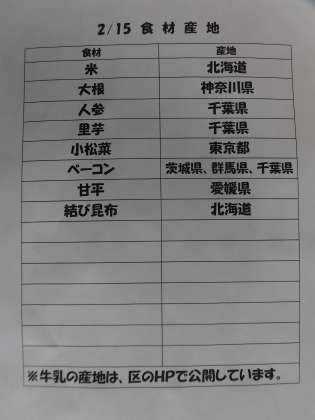 2/15 食材産地
食材 産地
米 北海道
大根 神奈川県
人参 千葉県
里芋 千葉県
小松菜 東京都
ベーコン 茨城県、群馬県、千葉県
甘平 愛媛県
結び昆布 北海道
※牛乳の産地は、区のHPで公開しています。